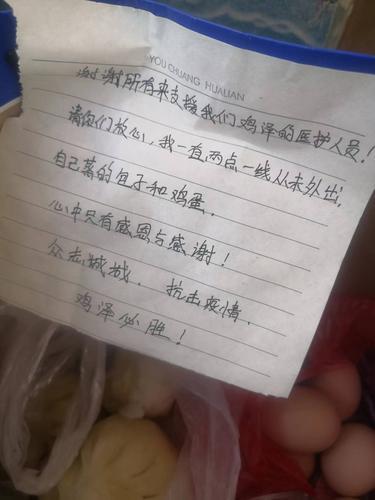 YOU CHUANG HUALIAN
谢谢所有来支援我们鸡泽的医护人员!
请你们放心,我一直两点一线从未外出,
自己蒸的包子和鸡蛋.
心中只有感恩与感谢!
众志城城. 抗击疫情.
鸡泽必胜!